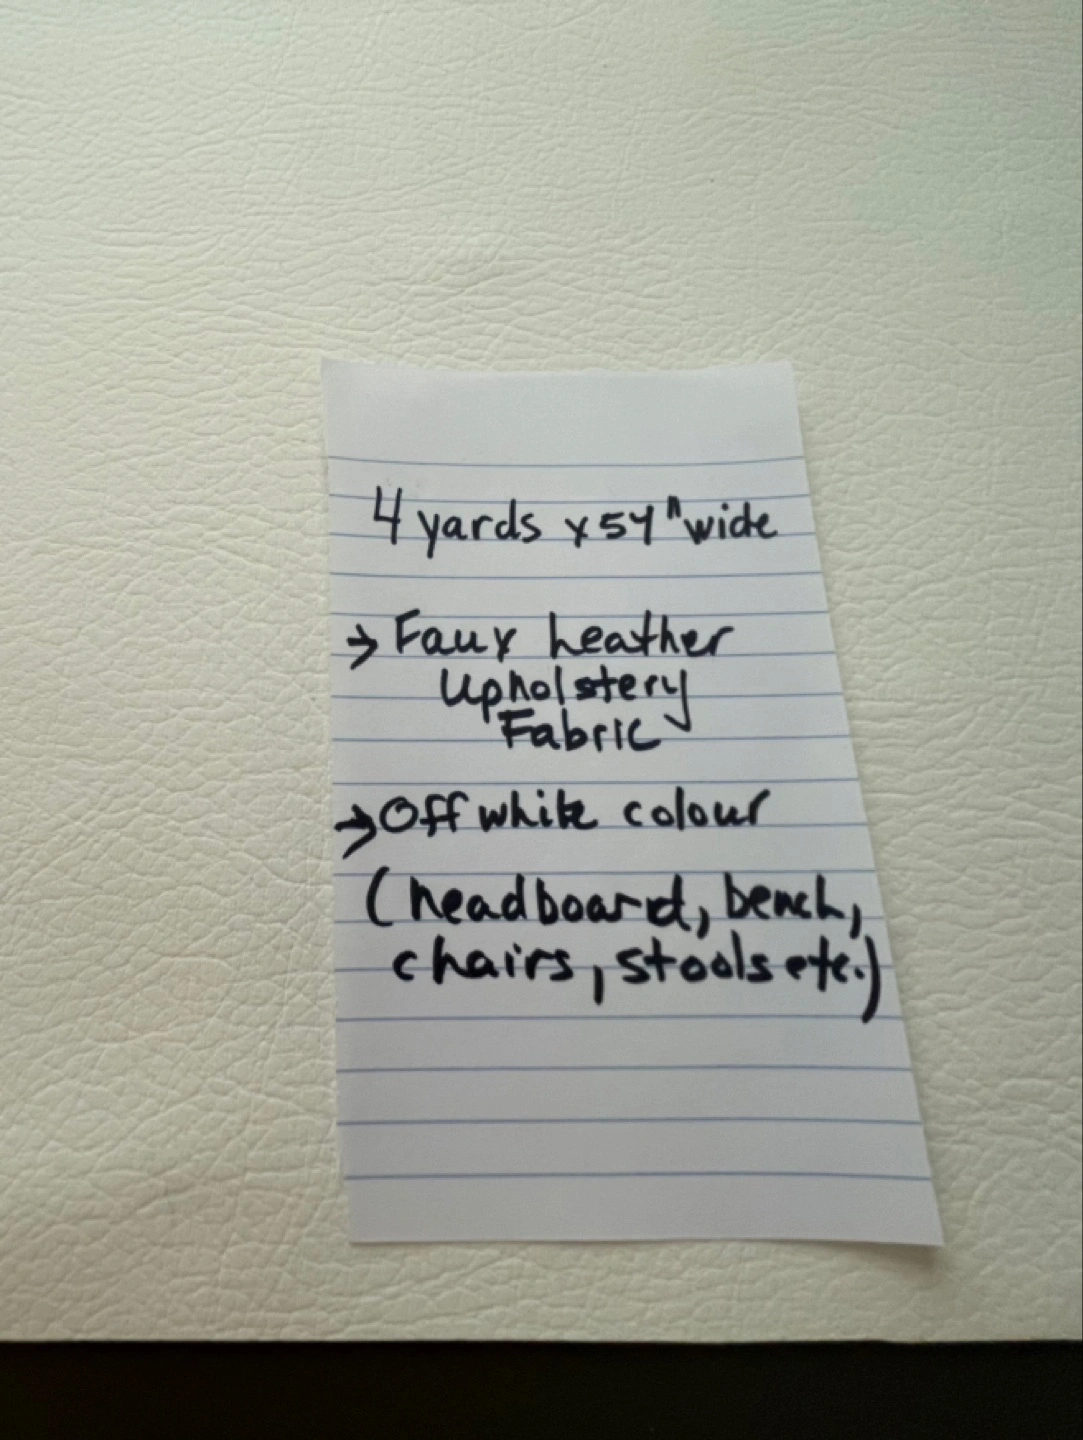 4 yards x 54" wide
→ Faux leather
Upholstery
Fabric
→ Off white colour
(headboard, bench,
chairs, stools etc.)